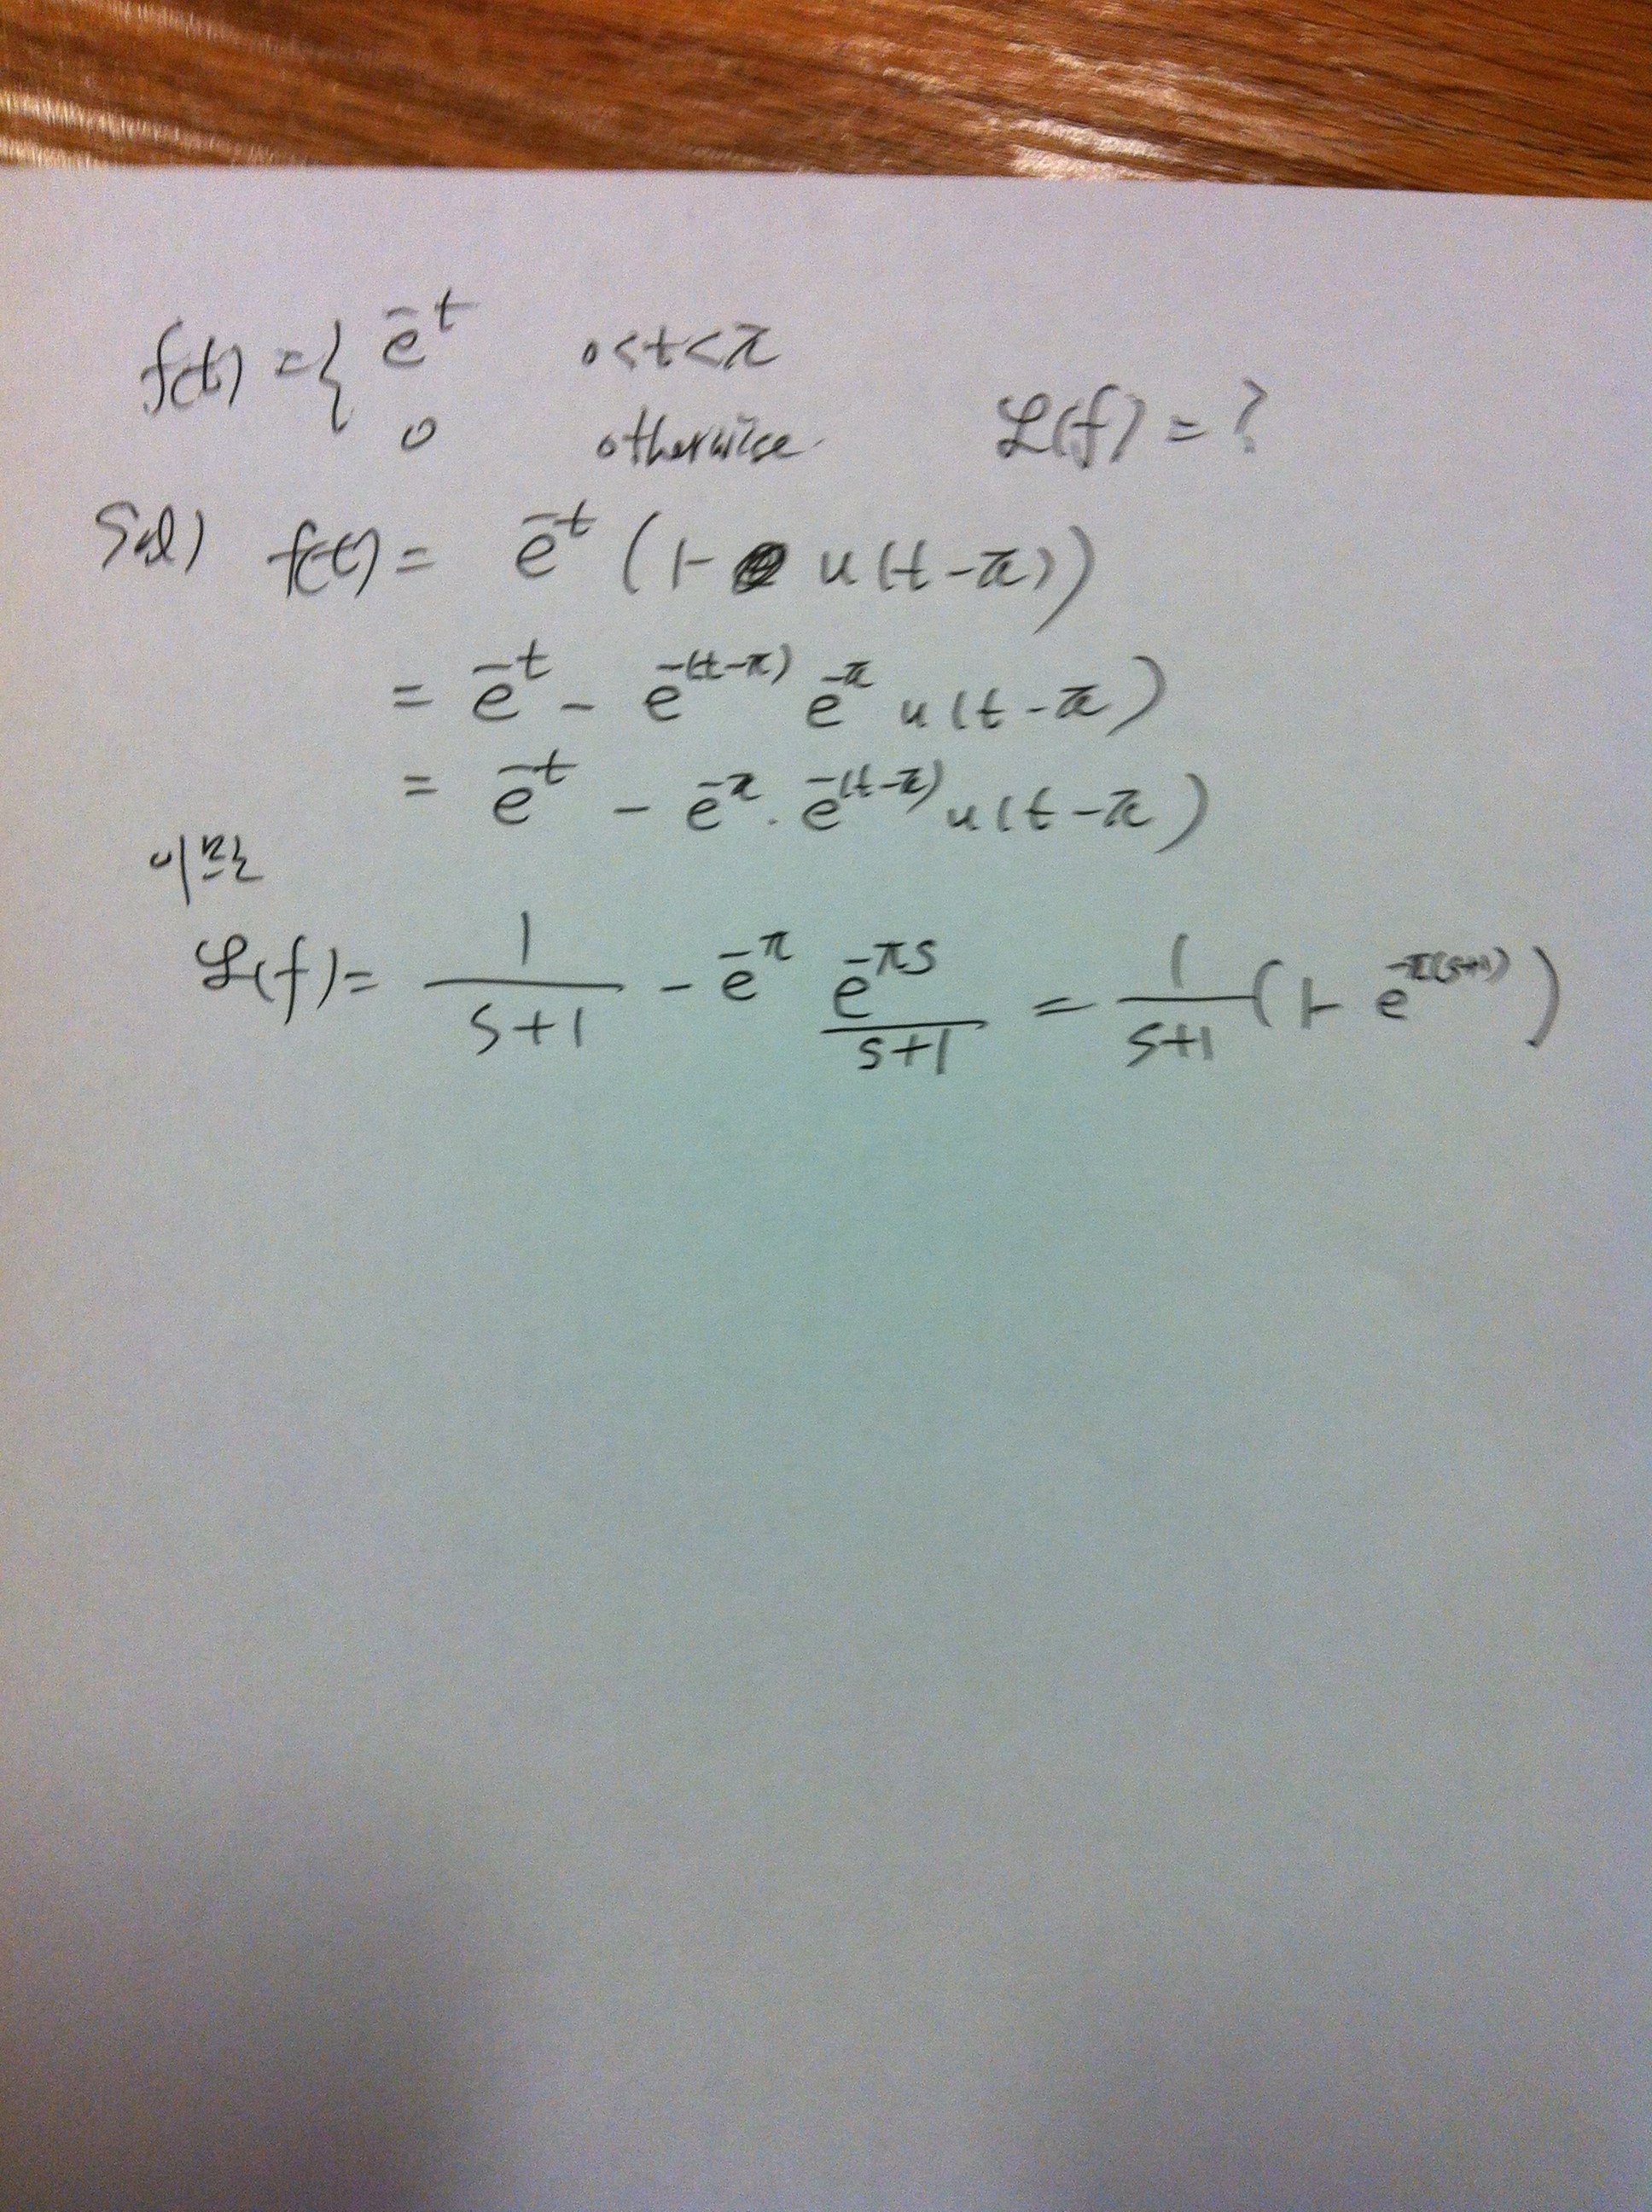 f(t) = { e^-t 0<t<π
0 otherwise. ℒ(f) = ?
Sol) f(t) = e^-t (1 - u(t-π))
= e^-t - e^-(t-π) e^-π u(t-π)
= e^-t - e^-π · e^-(t-π) u(t-π)
ℒ(f) = 1/(s+1) - e^-π e^-πs/(s+1) = 1/(s+1) (1 - e^-π(s+1))